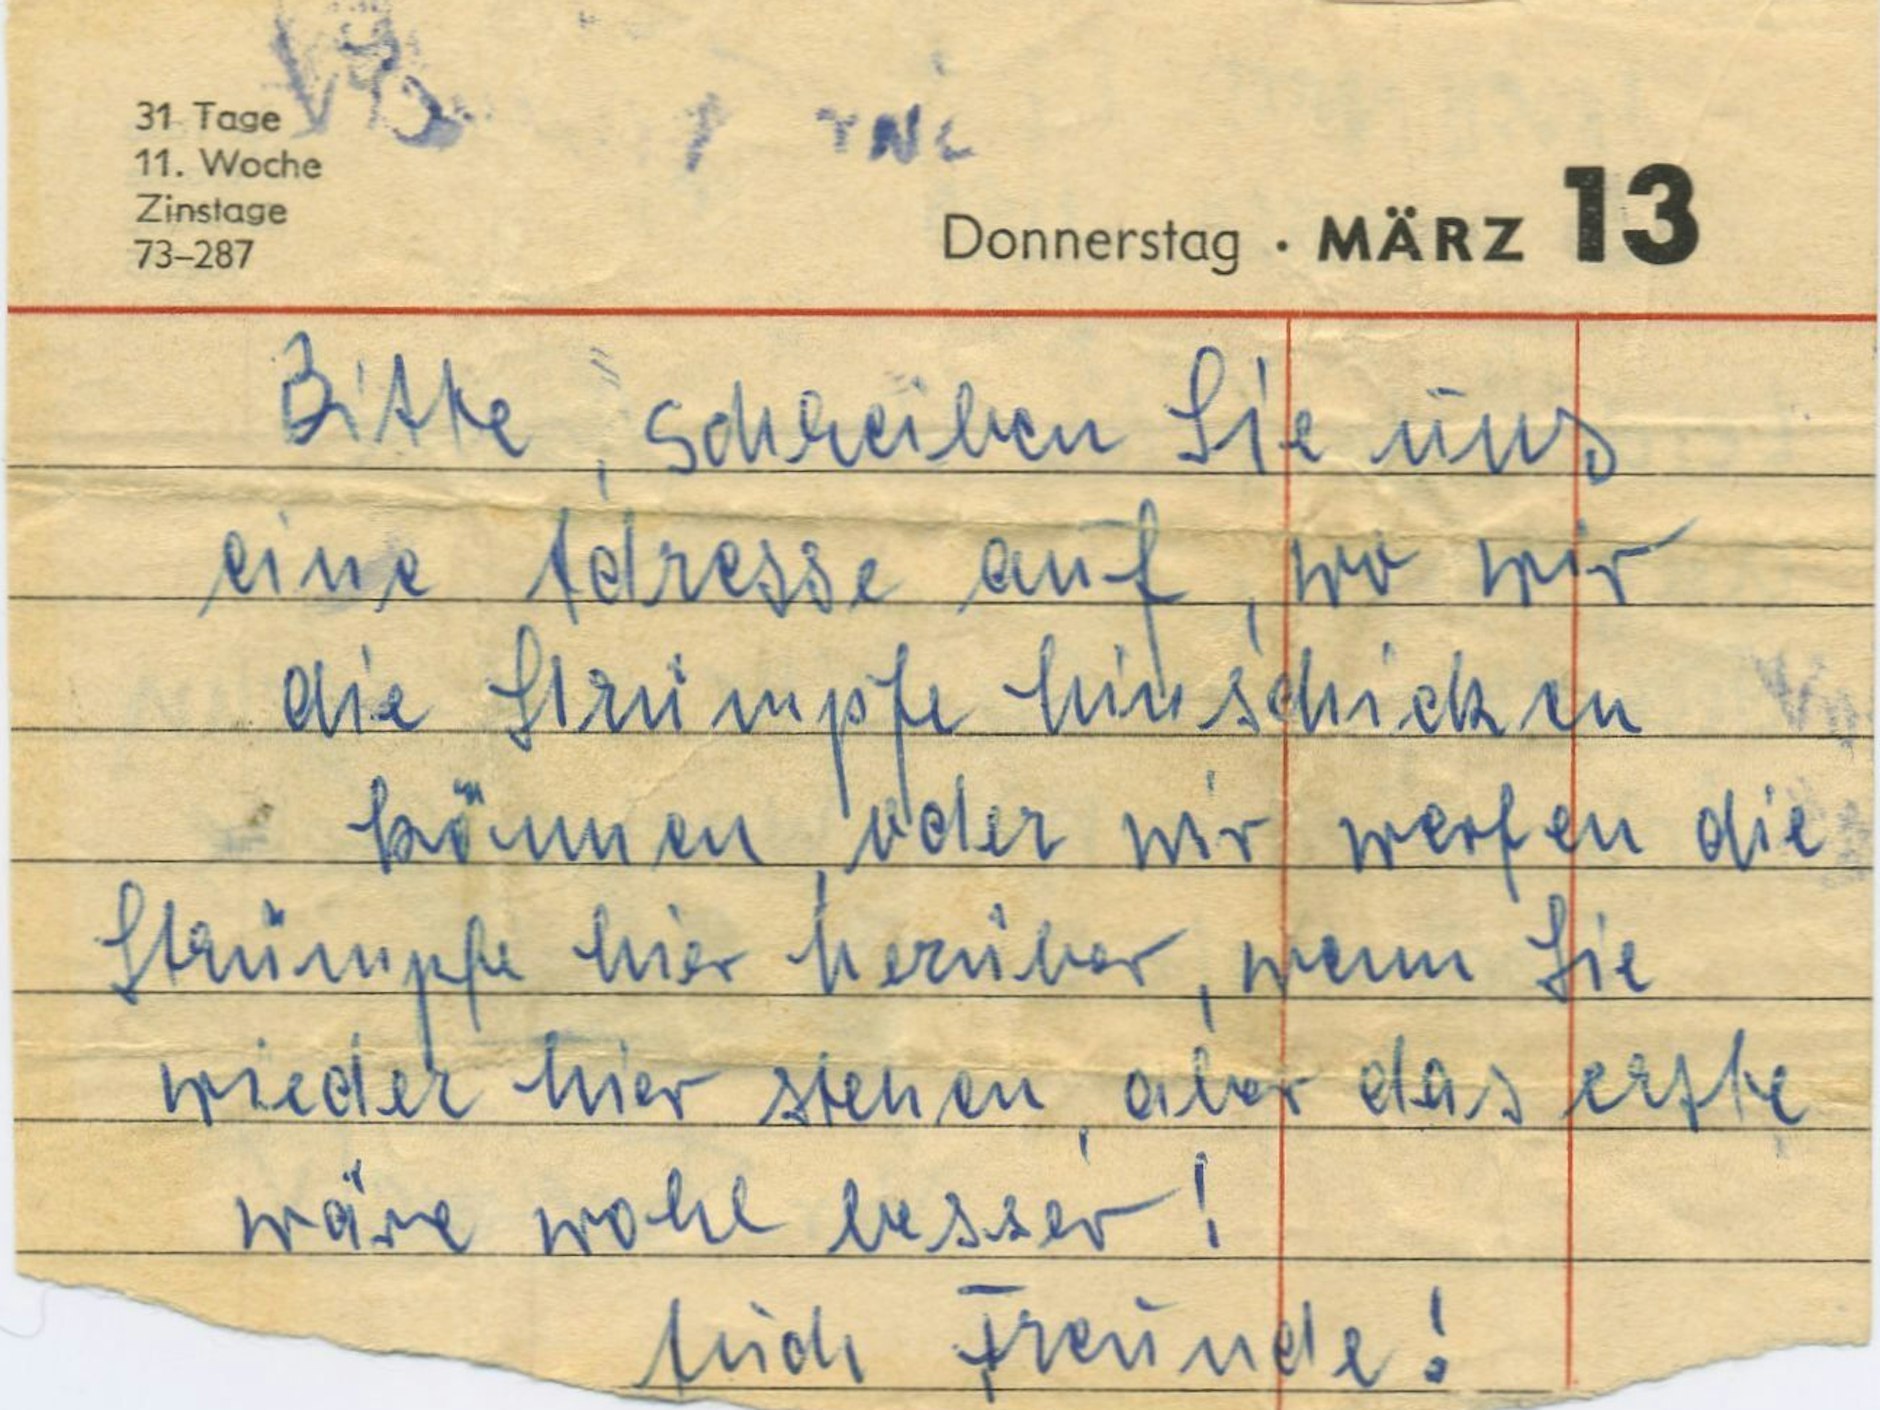 31 Tage
11. Woche
Zinstage
73–287
Donnerstag · MÄRZ 13
Bitte, schreiben Sie uns
eine Adresse auf, wo wir
die Strümpfe hinschicken
können oder wir werfen die
Strümpfe hier herüber, wenn Sie
wieder hier stehen, aber das erste
wäre wohl besser!
Auch Freunde!